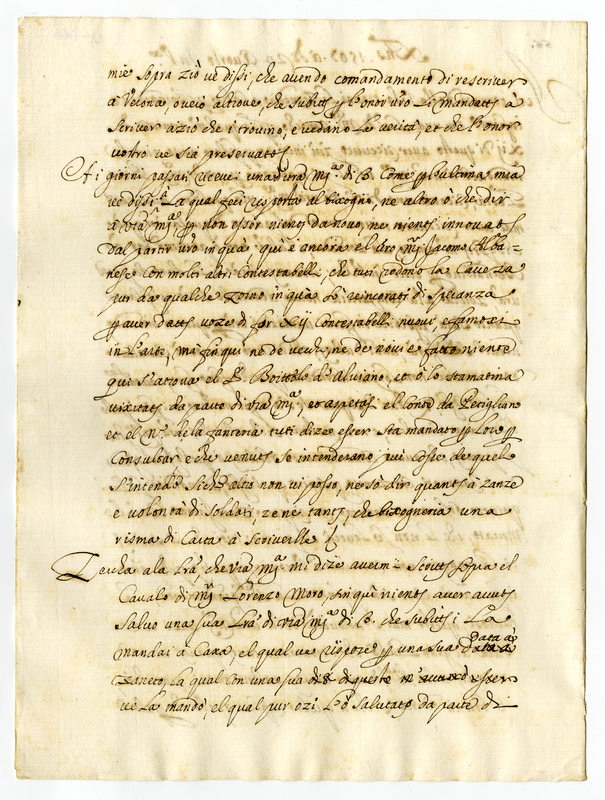 mie sopra ziò ve dissi, che avendo comandamento di rescriver
à Verona, overo altrove, che subito p honor vro li mandasti à
scriver aziò che i trovino, e vedano la verità, et che l'honor
vostro ve sia preservato
A i giorni passati ricevei una vra Mᵃ di B. come p l'ultima mia
ve dissi. La qual feci risposta al bisogno, ne altro ò che dir
à vra Mᵃ p non esser niente da novo, ne niente innovato
dal partir vro in qua, qui è ancora el vro Mʳ Jacomo Alba=
nese con molti altri Contestabelli, che tuti rodono la caveza
pur da qualche zorno in quà se reincorati di speranza
p aver dato voze di far xij Contestabelli nuovi, e famosi
in l'arte, ma fin qui ne de vechi, ne de novi è fatto niente
qui s'atrova el S. Bortolo d'Alviano, et ò lo stamatina
visitato da parte di vra Mᵃ, et aspetasi el Conte da Petigliano
et el nº de la fanteria tuti dize esser sta mandato p lor p
consultar e che venuto se intenderano più cosse de quel
s'intende, siché altro non vi posso, ne so dir quanto à zanze
e volontà di soldati, ze ne tante, che bisogneria una
risma di carta à scriverle
Zercha ala lrã che vra Mᵃ mi dize avermi scrito sopra el
cavalo di Mʳ Lorenzo Moro, fin quì niente aver avuto
salvo una sua lrã di vra Mᵃ di B. che subito i la
mandai à caxa, el qual ve rispoxe p una sua data à
Zaneto, la qual con una sua di di queste
ve la mandò, el qual pur ozi l'ò salutato da parte di